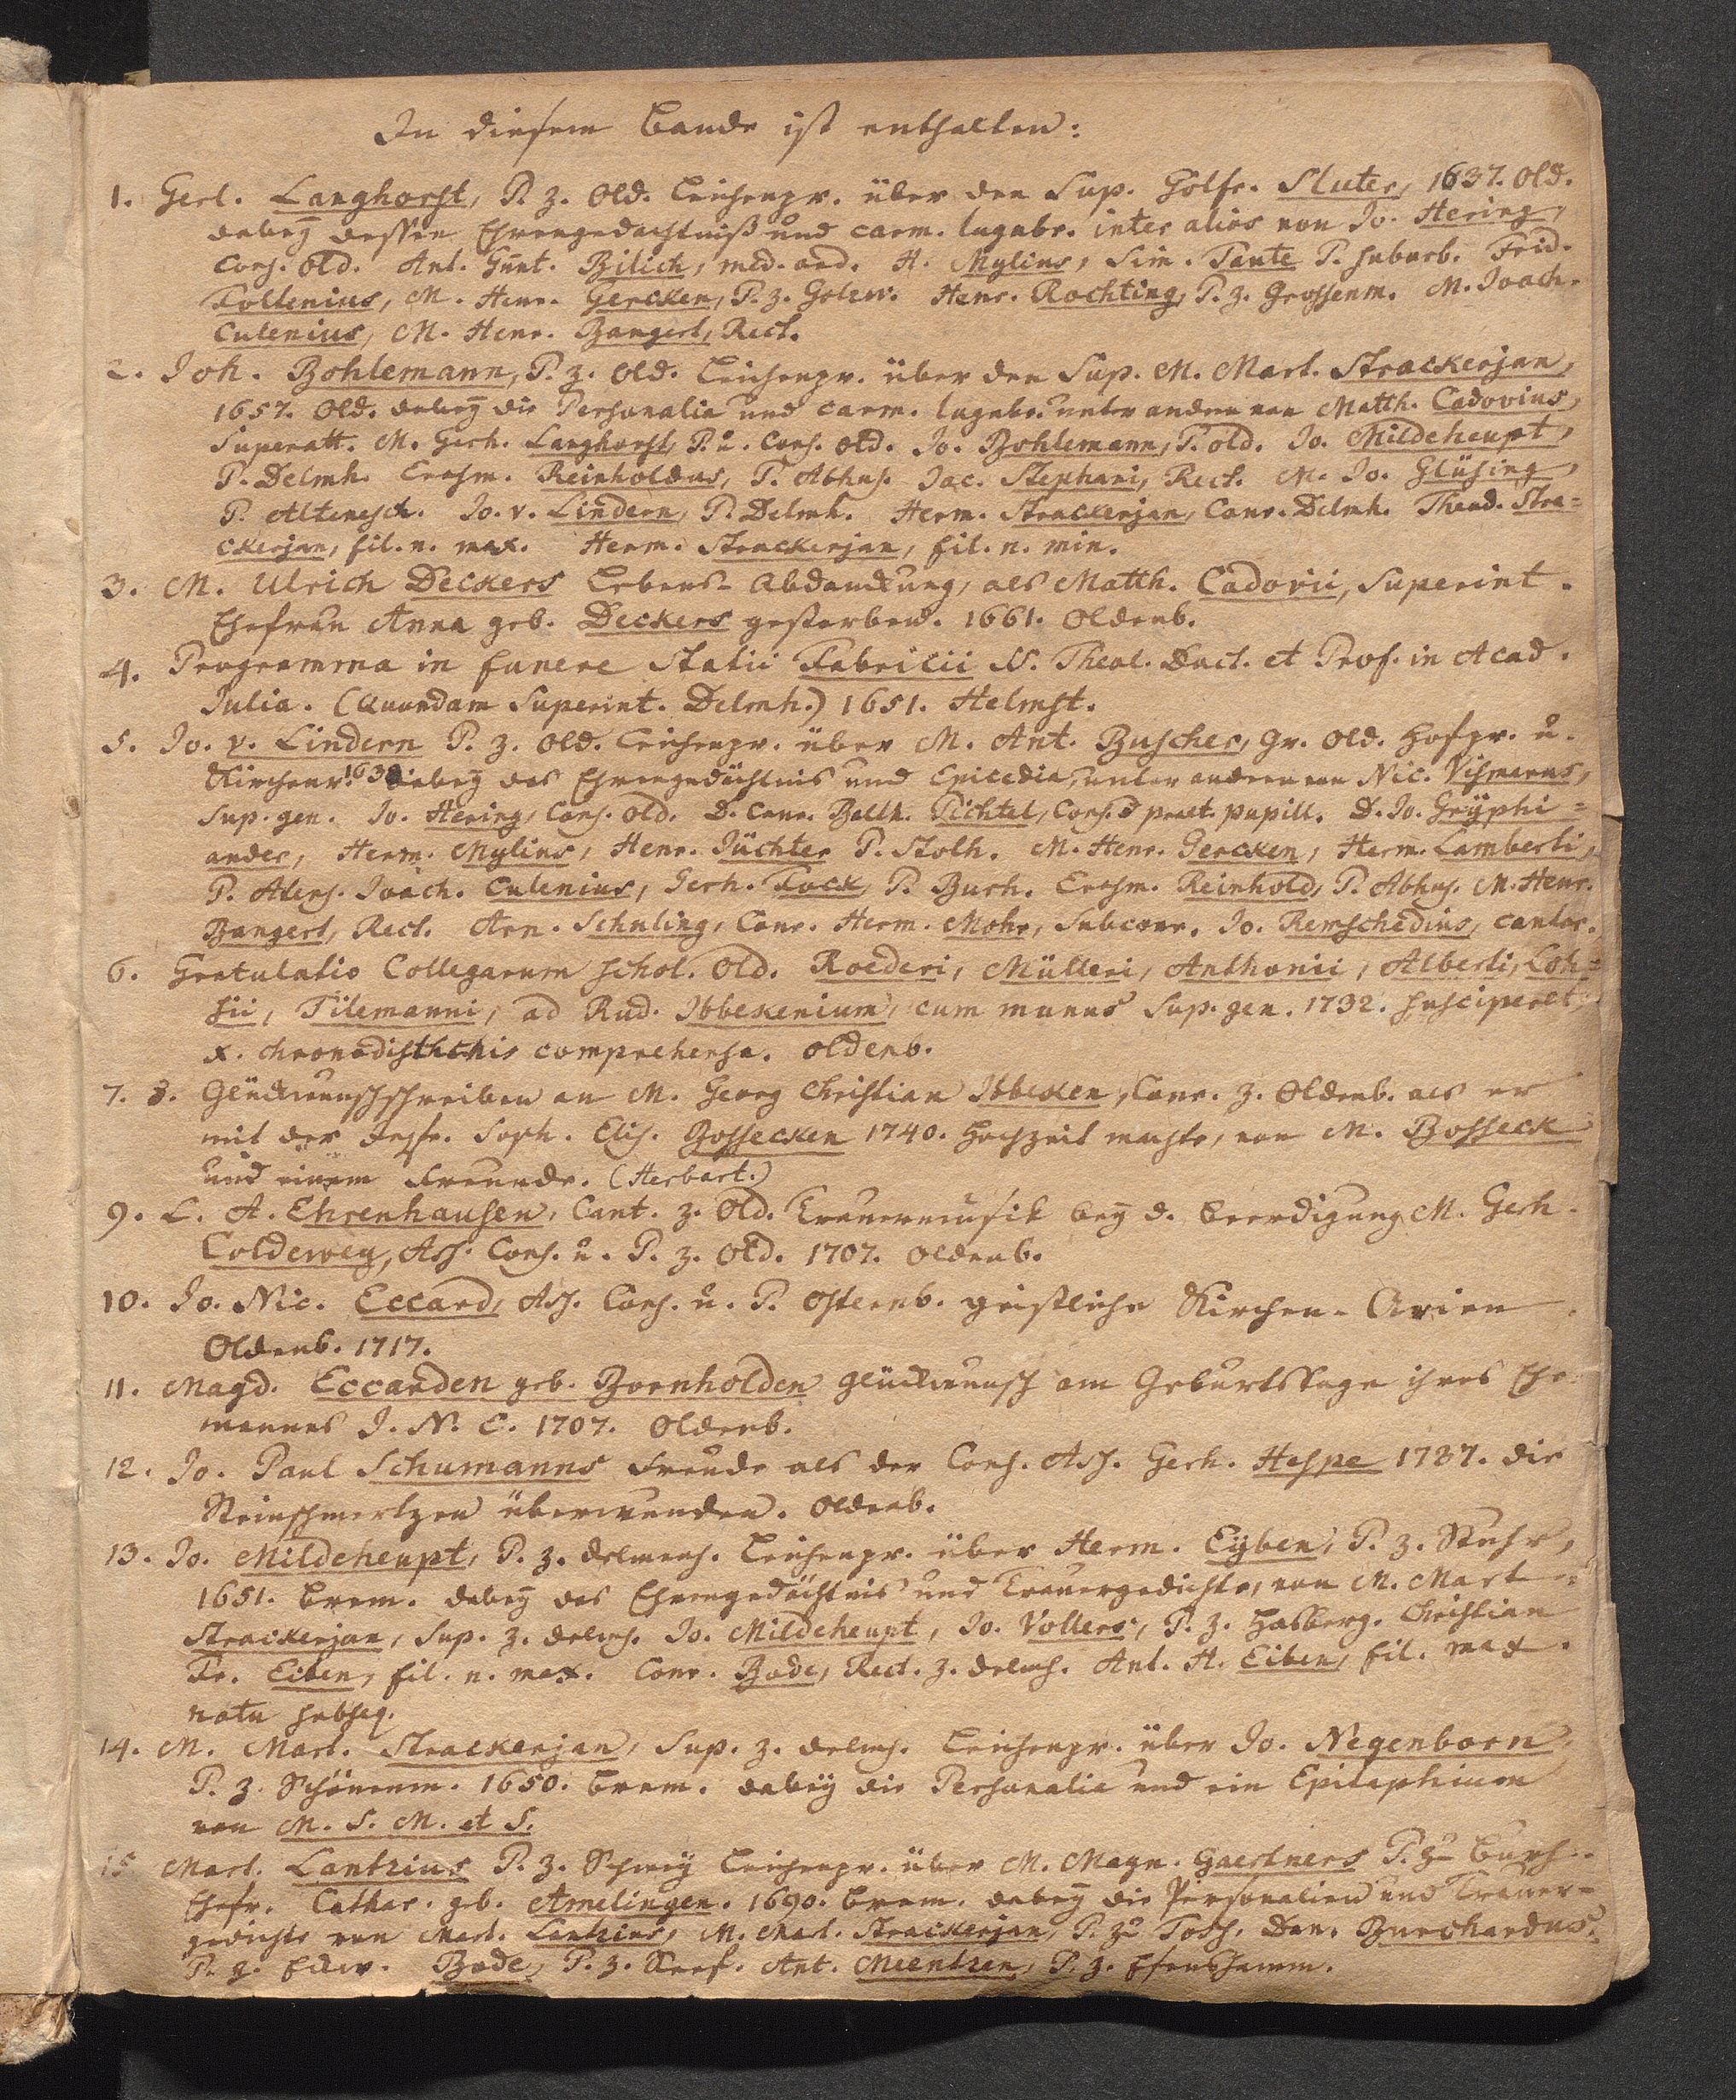 In diesem Bande ist enthalten:
1. Gerl. Langhorst, P. z. Old. Leichenpr. über den Sup. Gotfr. Sluter, 1637. Old.
dabeÿ dessen Ehrengedächtniß und carm. lugubr. inter alios von Jo. Hering,
Cons. Old. Ant. Günt. Bilich, med. ord. H. Mylius, Sim. Tante P. suburb. Frid.
Foltenius, M. Henr. Gercken, P. z. Golzw. Henr. Rochting, P. z. Grossenm. M. Joach.
Culenius, M. Henr. Bangert, Rect.
2. Joh. Bohlemann, P. z. Old. Leichenpr. über den Sup. M. Mart. Strackerjan,
1657. Old. dabeÿ die Personalia und carm. lugubr. unter andern von Matth. Cadovius,
Superatt. M. Gerh. Langhorst, P. u. Cons. Old. Jo. Bohlemann, P. Old. Jo. Mildeheupt,
P. Delmh. Erasm. Reinholdus, P. Abhus. Jac. Stephani, Rect. M. Jo. Glüsing,
P. Altenesch. Jo. v. Lindern, P. Delmh. Herm. Strackerjan, Conr. Delmh. Theod. Stra=
ckerjan, fil. n. max. Herm. Strackerjan, fil. n. min.
3. M. Ulrich Deckers Lebens-Abdanckung, als Matth. Cadovii, Superint.
Ehefrau Anna geb. Deckers gestorben. 1661. Oldenb.
4. Programma in funere Statii Fabricii SS. Theol. Doct. et Prof. in Acad.
Julia. (Quondam Superint. Delmh.) 1651. Helmst.
5. Jo. v. Lindern P. z. Old. Leichenpr. über M. Ant. Buscher, Gr. Old. Hofpr. u.
Kirchenr. 163 dabeÿ das Ehrengedächtnis und Epicedia, unter andern von Nic. Vismarus,
Sup. gen. Jo. Hering, Cons. Old. D. Conr. Balth. Pichtel, Cons. & praet. pupill. D. Jo. Grÿphi=
ander, Herm. Mylius, Henr. Jüchter P. Stolh. M. Henr. Gercken, Herm. Lamberti,
P. Atens. Joach. Culenius, Gerh. Fock, P. Burh. Erasm. Reinhold, P. Abhus. M. Henr.
Bangert, Rect. Arn. Schuling, Conr. Herm. Mohr, Subconr. Jo. Remschedius, cantor.
6. Gratulatio Collegarum schol. Old. Roederi, Mülleri, Anthonii, Alberti, Loh=
sii, Tilemanni, ad Rud. Ibbekenium, cum munus Sup. gen. 1732. susciperet,
x. chronodistichis comprehensa. Oldenb.
7. 8. Glückwunschschreiben an M. Georg Christian Ibbeken, Conr. z. Oldenb. als er
mit der Jgfr. Soph. Elis. Bossecken 1740. Hochzeit machte, von M. Bosseck
und einem Freunde. (Herbart.)
9. L. A. Ehrenhausen, Cant. z. Old. Trauermusik beÿ d. Beerdigung M. Gerh.
Coldeweÿ, Ass. Cons. u. P. z. Old. 1707. Oldenb.
10. Jo. Nic. Eccard, Ass. Cons. u. P. Osternb. geistliche Kirchen-Arien.
Oldenb. 1717.
11. Magd. Eccarden geb. Bornholden Glückwunsch am Geburtstage ihres Ehe=
mannes J. N. E. 1707. Oldenb.
12. Jo. Paul Schumanns Freude als der Cons. Ass. Gerh. Hespe 1737. die
Steinschmertzen überwunden. Oldenb.
13. Jo. Mildeheupt, P. z. Delmenh. Leichenpr. über Herm. Eÿben, P. z. Stuhr,
1651. Brem. dabeÿ das Ehrengedächtnis und Trauergedichte, von M. Mart.
Strackerjan, Sup. z. Delmh. Jo. Mildeheupt, Jo. Vollers, P. z. Hasberg. Christian
Fr. Eiben, fil. n. max. Conr. Bode, Rect. z. Delmh. Ant. H. Eiben, fil. max.
natu subseq.
14. M. Mart. Strackerjan, Sup. z. Delmh. Leichenpr. über Jo. Negenborn
P. z. Schönem. 1650. Brem. dabeÿ die Personalia und ein Epitaphium
von M. S. M. et S.
15 Mart. Lantzius P. z. Schweÿ Leichenpr. über M. Magn. Gaertners P. zu Burh.
Ehefr. Cathar. geb. Amelingen. 1690. Brem. dabeÿ die Personalien und Trauer=
gedichte von Mart. Lantzius, M. Mart. Strackerjan, P. zu Toss. Dan. Burchardus,
P. z. Eckw. Bode, P. z. Seef. Ant. Mientzen, P. z. Esenshamm.